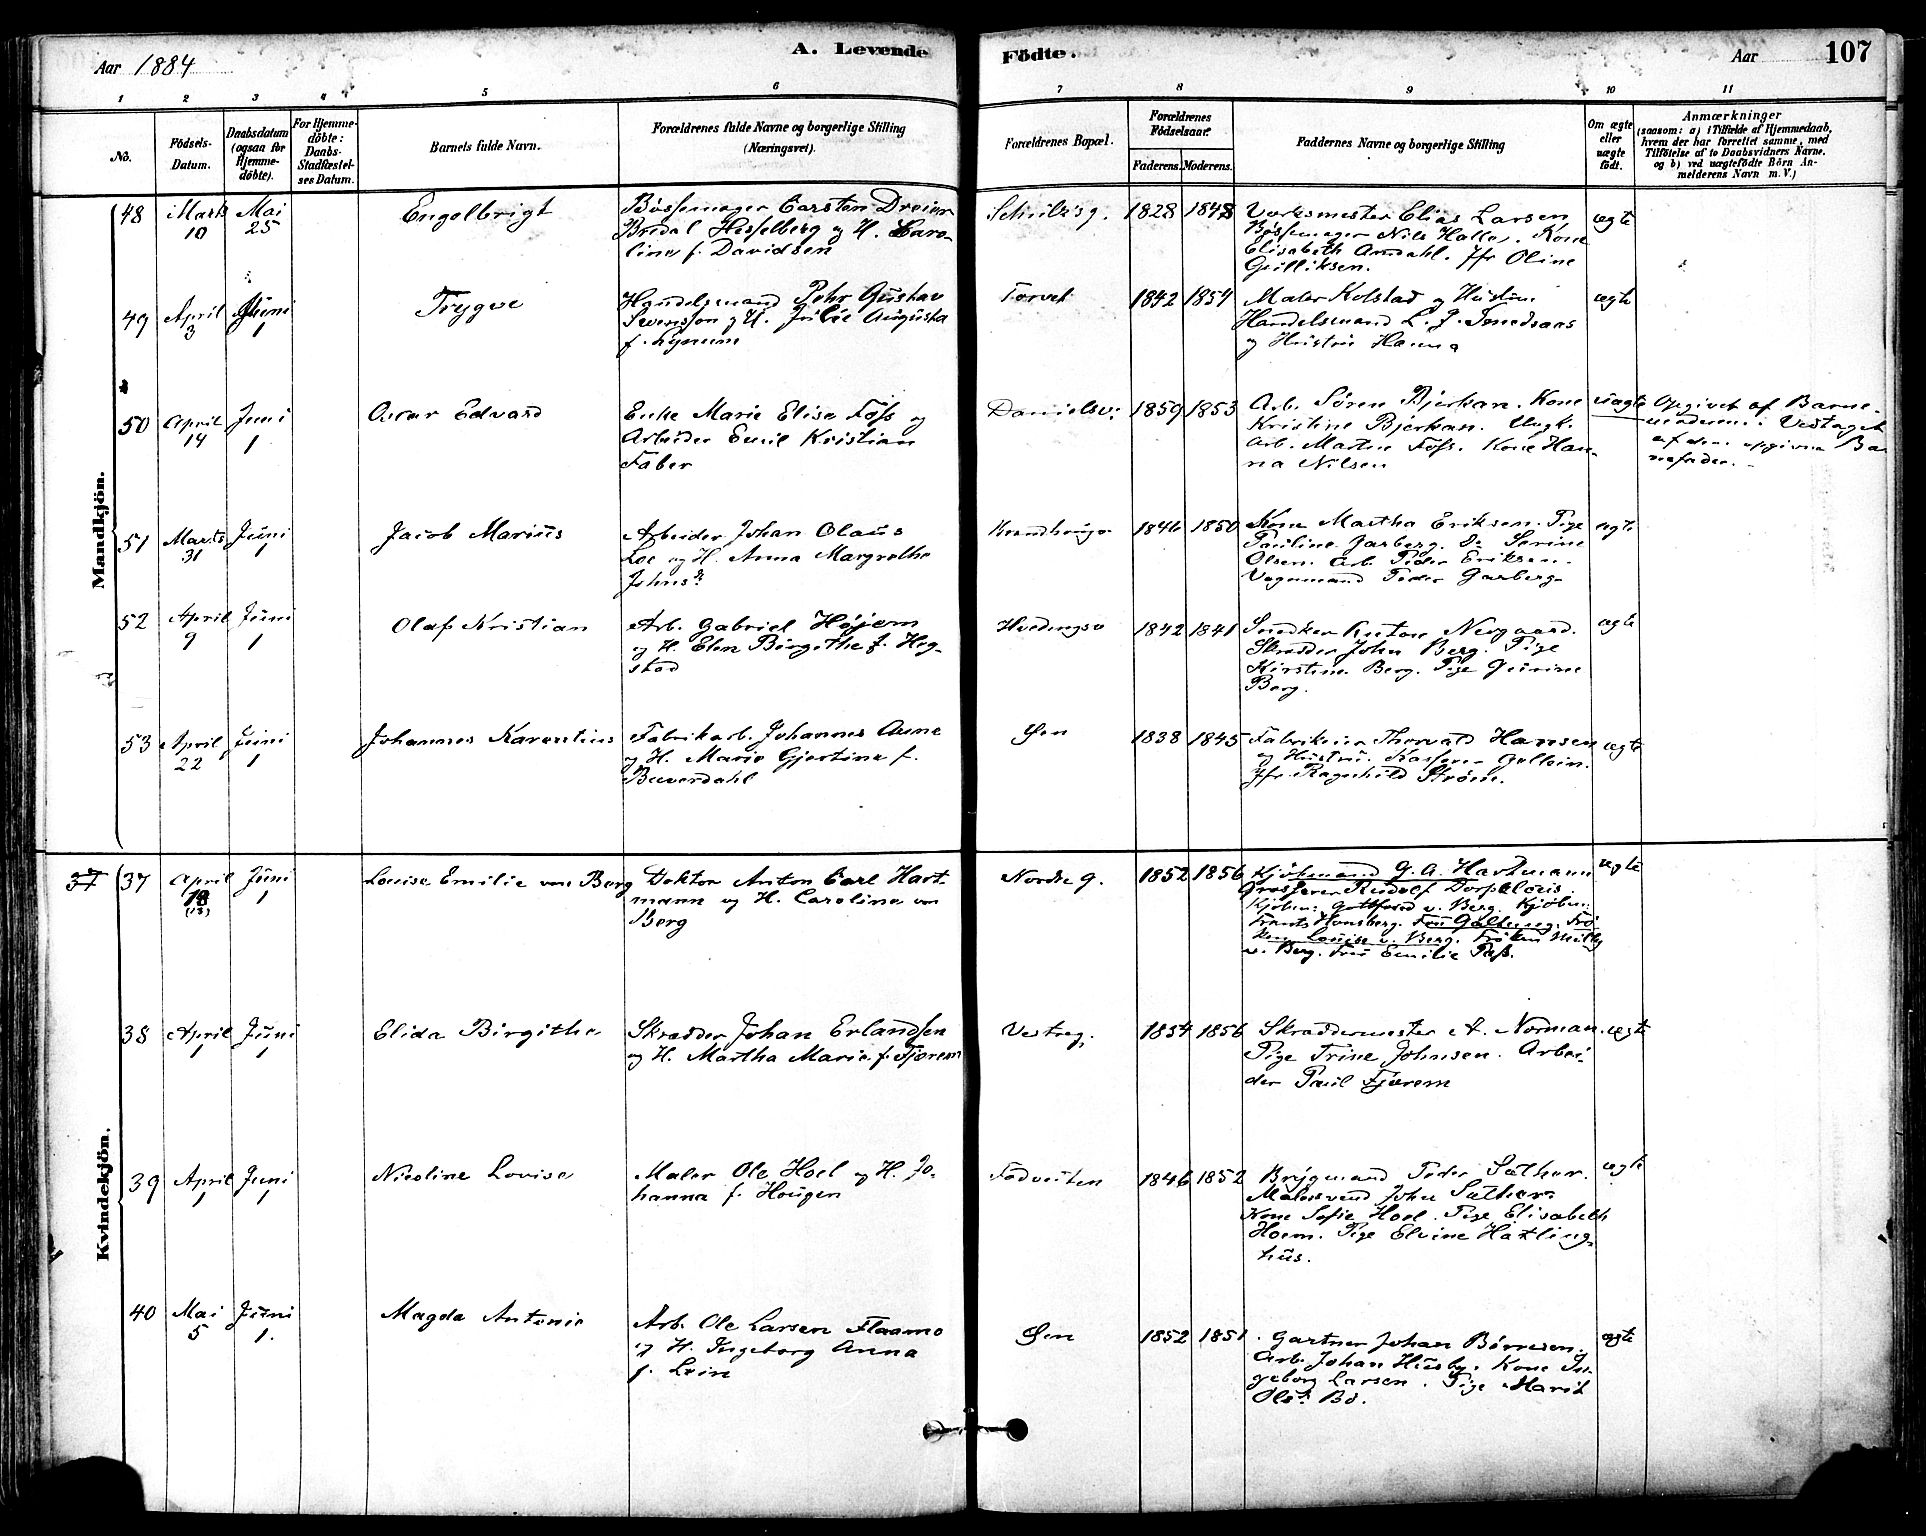 Aar 1884
A. Levende
Födte.
Aar
107
1 2 3 4 5 6 7 8 9 10 11
No.
Födsels-Datum.
Daabsdatum (ogsaa for Hjemme-döbte).
For Hjemme-döbte: Daabs-Stadfæstel-ses Datum.
Barnets fulde Navn.
Forældrenes fulde Navne og borgerlige Stilling (Næringsvei).
Forældrenes Bopæl.
Forældrenes Födselsaar.
Faderens. Moderens.
Faddernes Navne og borgerlige Stilling
Om ægte eller uægte födt.
Anmærkninger
(saasom: a) i Tilfælde af Hjemmedaab,
hvem der har forrettet samme, med
Tilföielse af to Daabsvidners Navne.
og b) ved uægtefödte Börn An-
melderens Navn m. V.)
Mandkjön.
48 Marts 10 Mai 25
Engelbrigt
Bøssemager Carsten Dreier
Bredal Hesselberg og H. Karo-
line f. Davidsen
1828 1848
Værksmester Elias Larsen
Bøssemager Nils Halle. Kone
Elisabeth Amdahl. Jfr Oline
Gulliksen.
ægte
49 April 3 Juni 1
Trygve
Handelsmand Pehr Gustav
Svensson og H. Julie Augusta
Torvet
1842 1854
Maler Kolstad og Hustru
Handelsmand L. J.
og Hustru Hanna
ægte
50 April 14 Juni 1
Oscar Edvard
Enke Marie Elise Foss og
Arbeider Emil Kristian
Faber
Danielsv:
1859 1853
Arb. Søren Bjerkan. Kone
Kristine Bjerkan. Ungk.
Arb. Martin Foss. Kone Han-
na Nilsen
uægte
Opgivet af Barne-
moderen. Vedtaget
af den opgivne Bar
nefader.
51 Marts 31 Juni 1
Jacob Marius
Arbeider Johan Olaus
Loe og H. Anna Margrethe
Johnsd.
1846 1850
Kone Martha Eriksen. Pige
Pauline Jarberg. Do Serine
Olsen. Arb. Peder Eriksen.
Vognmand Peder Garberg.
ægte
52 April 9 Juni 1
Olaf Kristian
Arb. Gabriel Højem
og H. Elen Birgithe f. Heg-
stad
1842 1841
Snedker Anton Nergaard.
Skrædder John Berg. Pige
Kirstine Berg. Pige Gurine
Berg.
ægte
53 April 22 Juni 1
Johannes Karentius
Fabrikarb. Johannes Aune
og H. Marie Gjertine f.
Beverdahl
Øen
1838 1845
Fabrikeier Thorvald Hansen
og Hustru. Kasserer Gellein.
Jfr. Ragnhild Strøm.
ægte
Kvindekjön.
37 37 April 18 (18) Juni 1
Louise Emilie von Berg
Doktor Anton Carl Hart-
mann og H. Caroline von
Berg
Nordre g.
1852 1856
Kjøbmand G. A. Hartmann
Grosserer Rudolf
Kjøbm. v. Berg. Kjøbm.
Frants Hansberg. Fru Galtung. Frø
ken Louise v. Berg. Frøken Milly
v. Berg. Fru Emilie
ægte
38 April 1 Juni 1
Elida Birgithe
Skrædder Johan Erlandsen
og H. Martha Marie f. Fjærem
Vestreg.
1854 1856
Skræddermester A. Norman.
Pige Trine Johnsen. Arbei-
der Paul Fjærem
ægte
39 April 1 Juni 1
Nicoline Lovise
Maler Ole Hoel og H. Jo-
hanna f. Hougen
1846 1852
Brygmand Peder Sæther.
Malersvend John Sæther
Kone Sofie Hoel. Pige Elisabeth
Hoem. Pige Elvine Hatling-
hus.
ægte
40 Mai 5 Juni 1.
Magda Antonie
Arb. Ole Larsen Flaamo
og H. Ingeborg Anna
f. Lein
Øen
1852 1851
Gartner Johan Børresen.
Arb. Johan Husby. Kone In-
geborg Larsen. Pige Marit
Olsd. Bø.
ægte